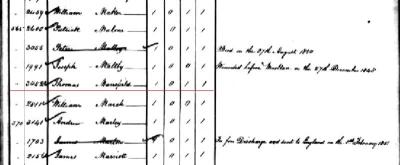 William Maher 1 0 1 1
565 Patrick Malone 1 0 1 1
3055 Peter Molloy 1 1 1 Died on the 27th August 1850
1791 Joseph Maltby 1 0 0 1 Wounded before Mooltan on the 27th December 1848
Thomas Mansfield 1 0 1 1
William Marsh 1 0 0 1
570 3141 Andrew Marley 1 0 1 1
1703 James Martin 0 1 1 In for Discharge and sent to England on the 1st February 1851
James Marriott 1 0 1 1